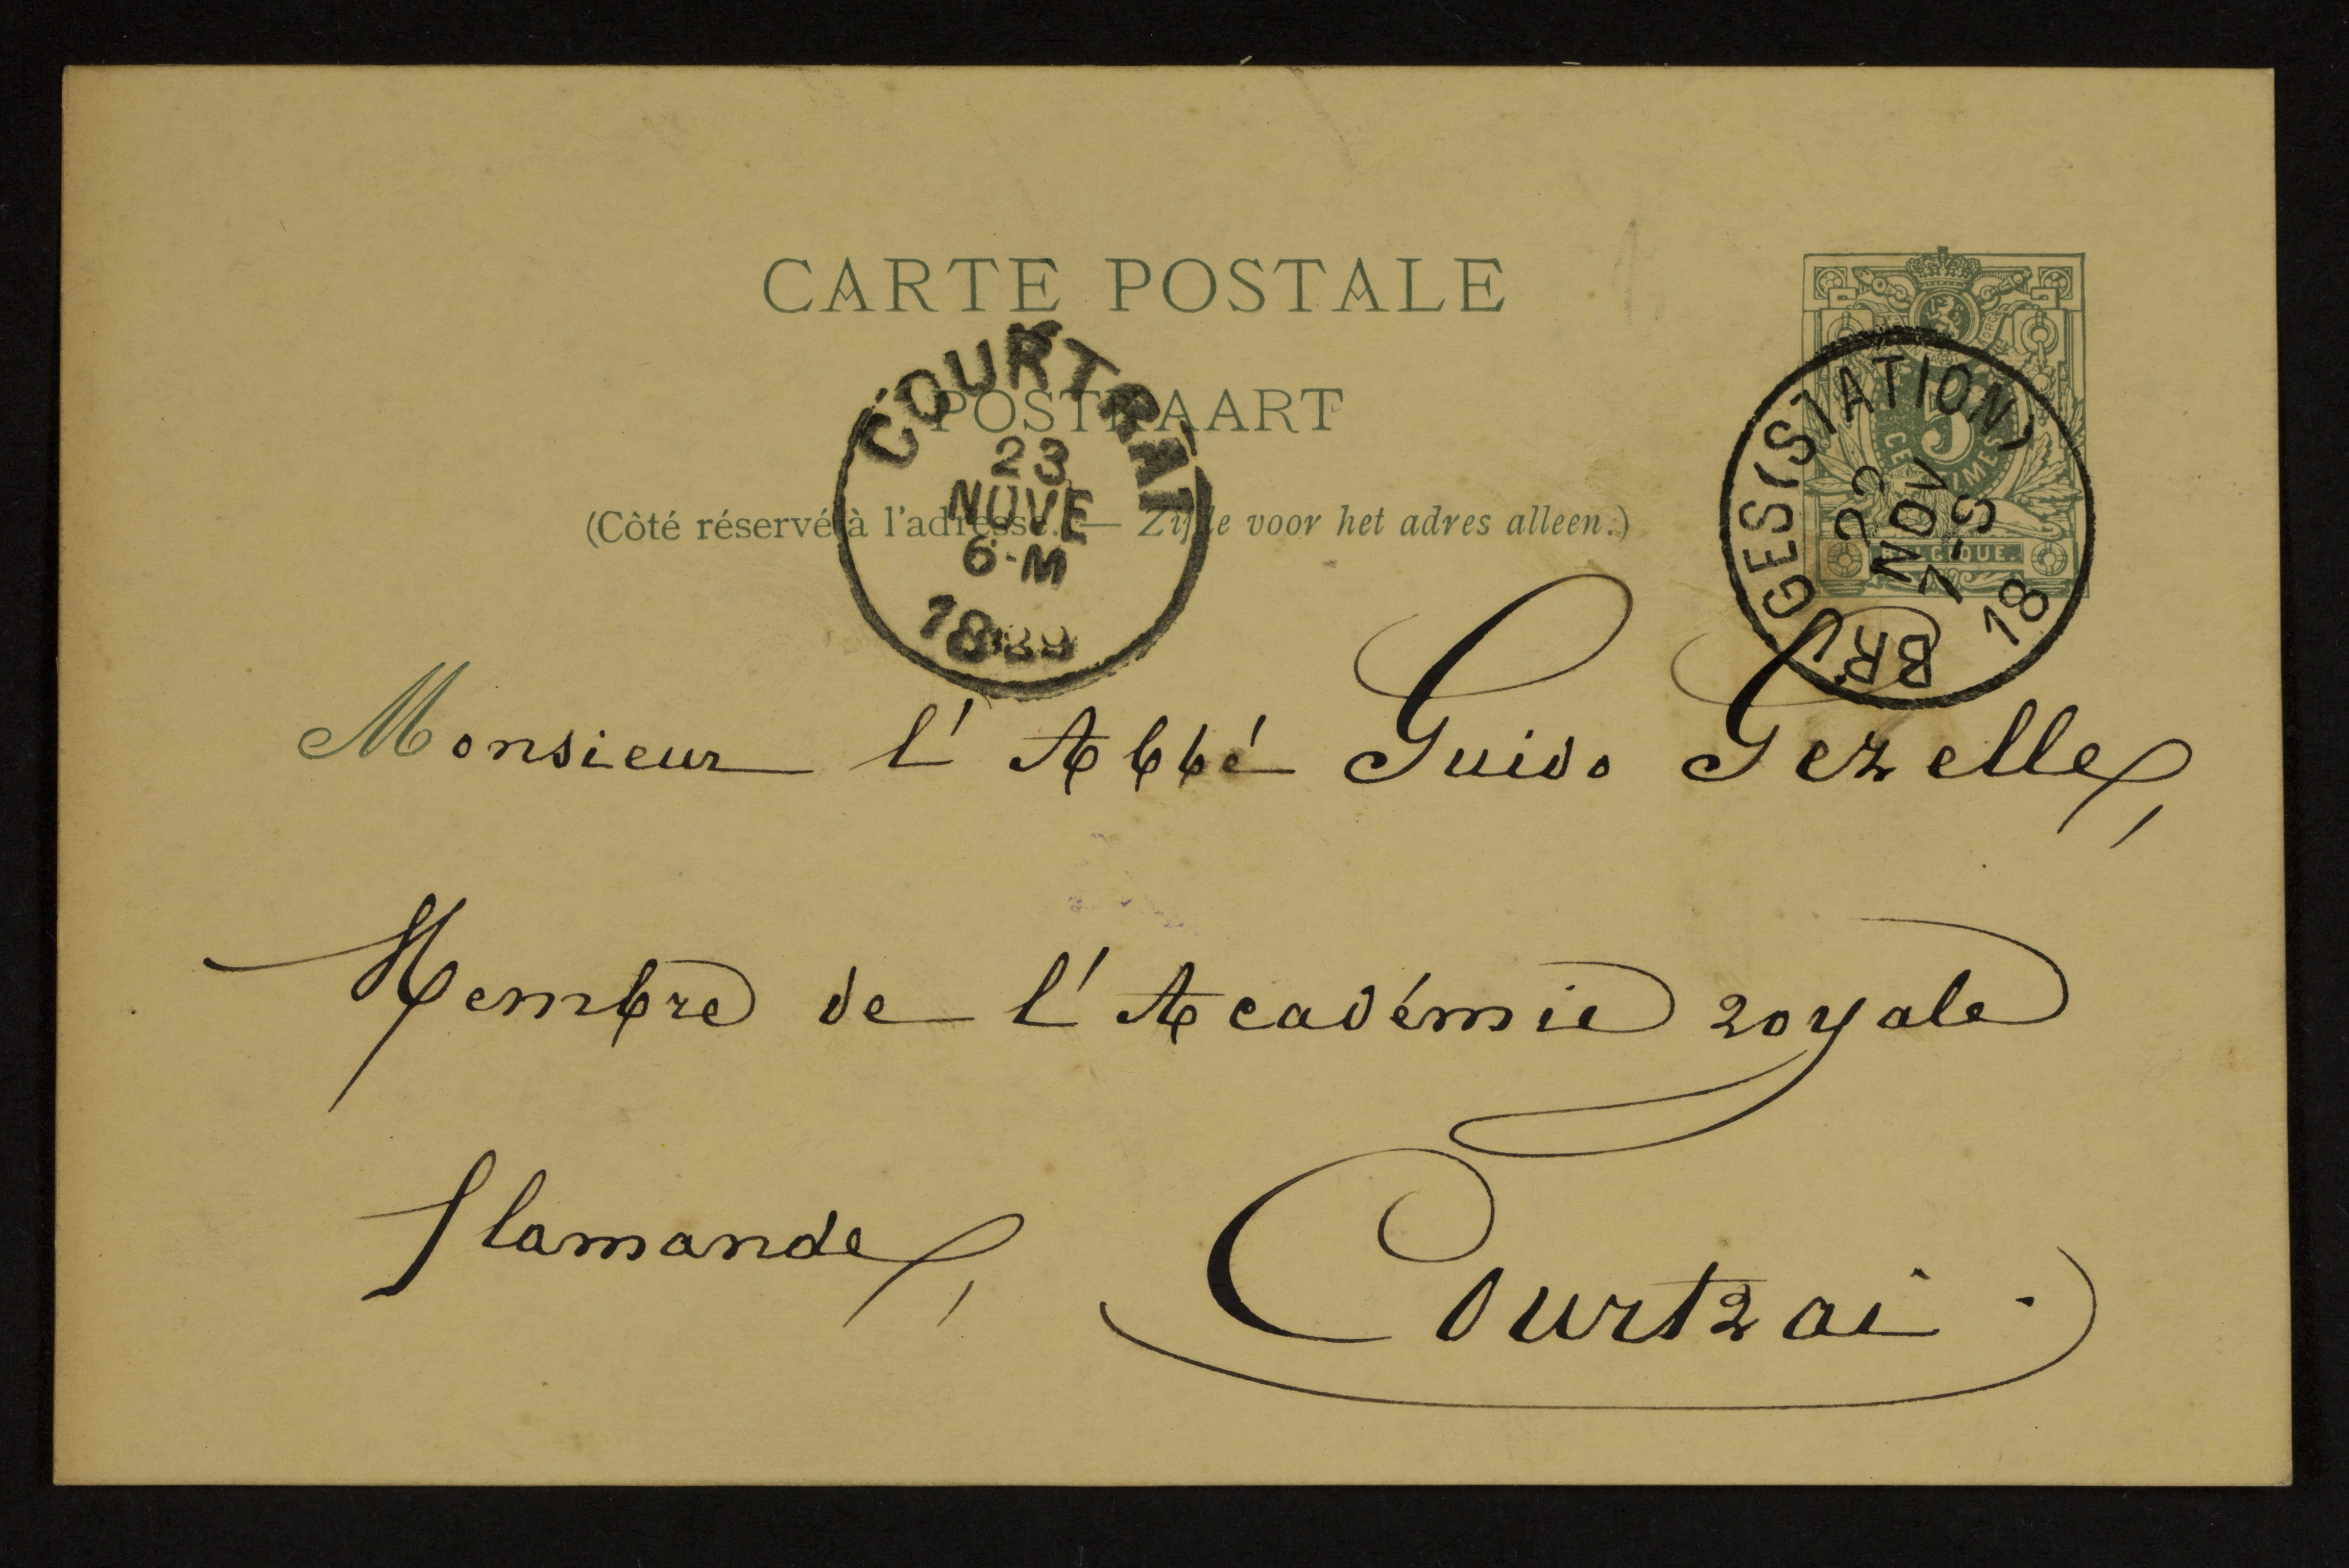 CARTE POSTALE
POSTKAART
(Côté réservé à l'adresse. — Zijde voor het adres alleen.)
COURTRAI
23
NOVE
6-M
18
BRUGES (STATION)
22
NOV
7-S
18
5
CENTIMES
BELGIQUE.
Monsieur l'Abbé Guido Gezelle,
Membre de l'Académie royale
flamande,
Courtrai.